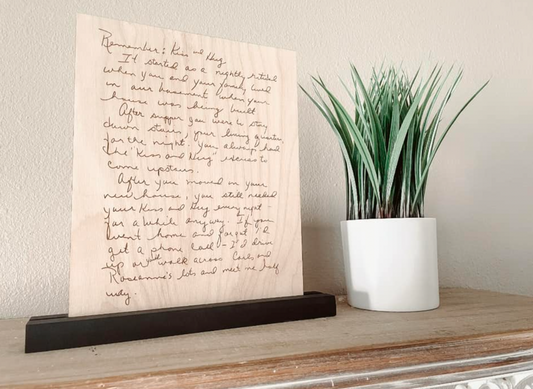 Remember: Kiss and Hug
It started as a nightly ritual
when you and your family lived
in our basement when your
house was being built.
After supper you were to stay
down stairs, your living quarters
for the night. You always had
the "Kiss and Hug" excuse to
come upstairs.
After you moved in your
new house, you still needed
your Kiss and Hug every night -
for a while anyway. If you
went home and forgot, I'd
get a phone call - I'd drive
up or walk across and
Roseanne's lots and meet me half
way.